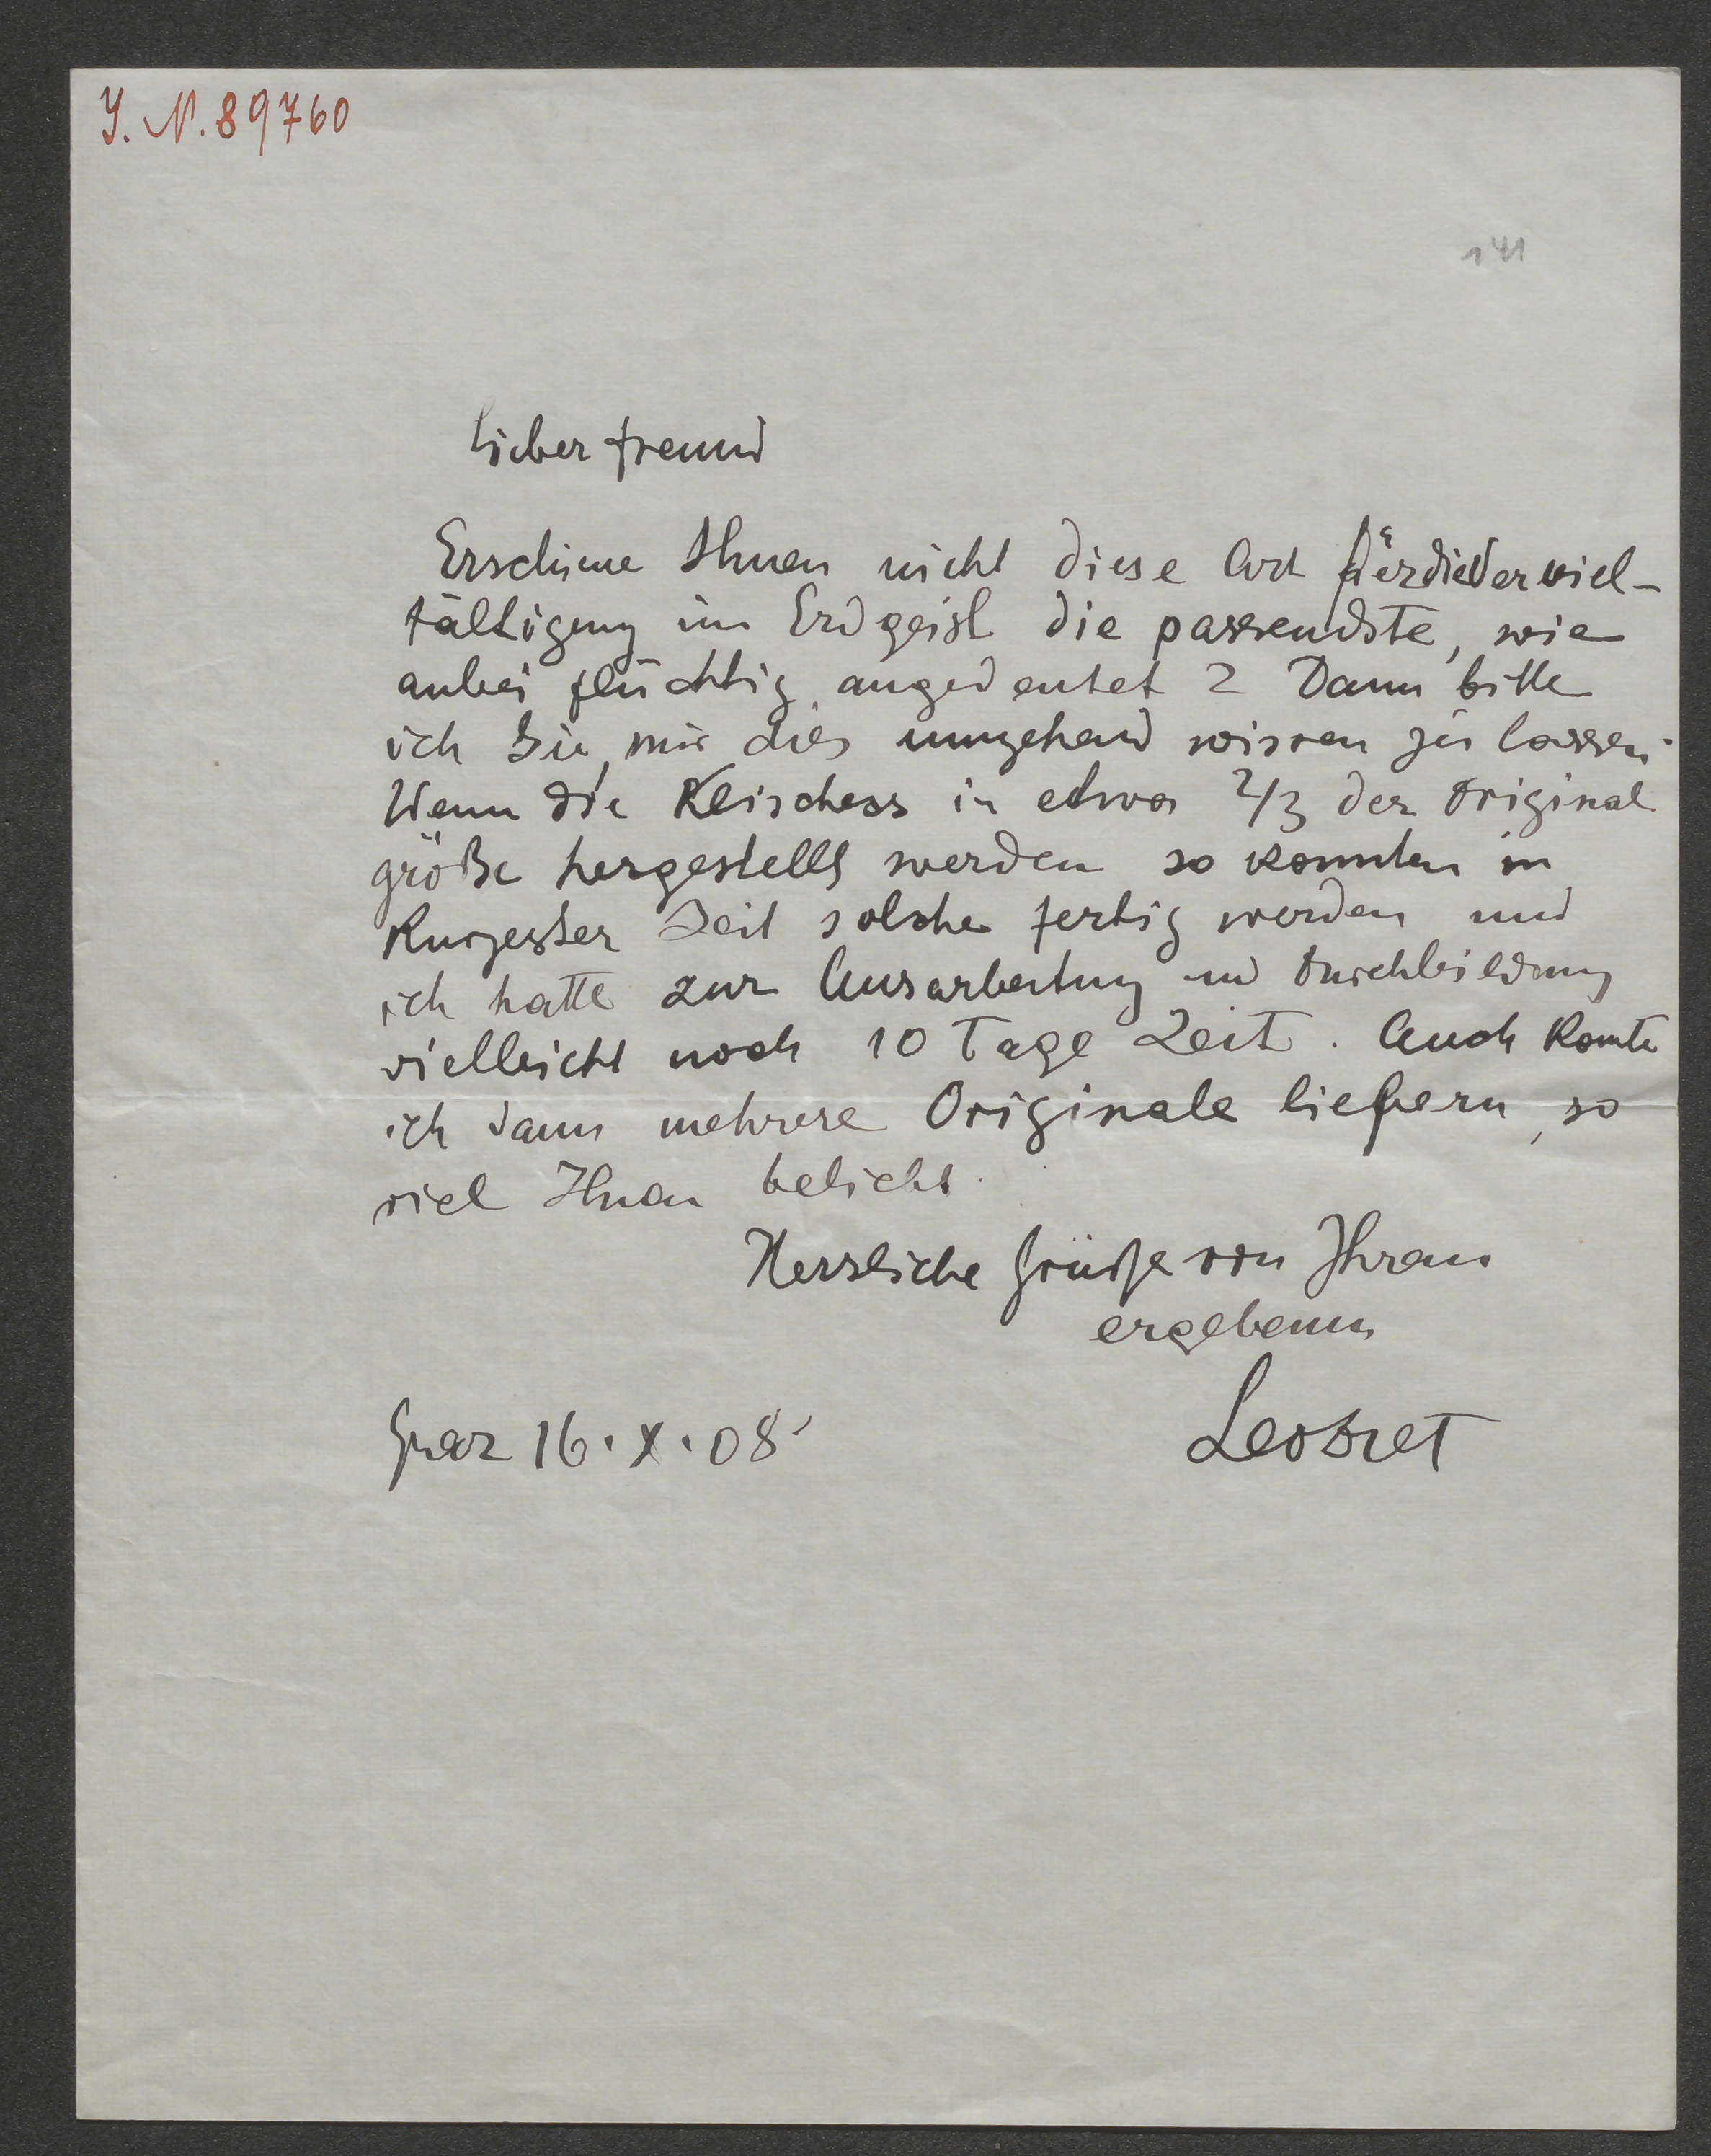 J. N. 89760
141
Lieber Freund
Erschiene Ihnen nicht diese Art für die Verviel-
fältigung im Erdgeist die passendste, wie
anbei flüchtig angedeutet? Dann bitte
ich Sie, mir dies umgehend wissen zu lassen.
Wenn die Klischees in etwa 2/3 der Original
größe hergestellt werden so konnten in
kurzester Zeit solche fertig werden und
ich hatte zur Ausarbeitung und Durchbildung
vielleicht noch 10 Tage Zeit. Auch konte
ich dann mehrere Originale liefern, so
viel Ihnen beliebt.
Herzliche Grüße von Ihrem
ergebenen
Graz 16.X.08